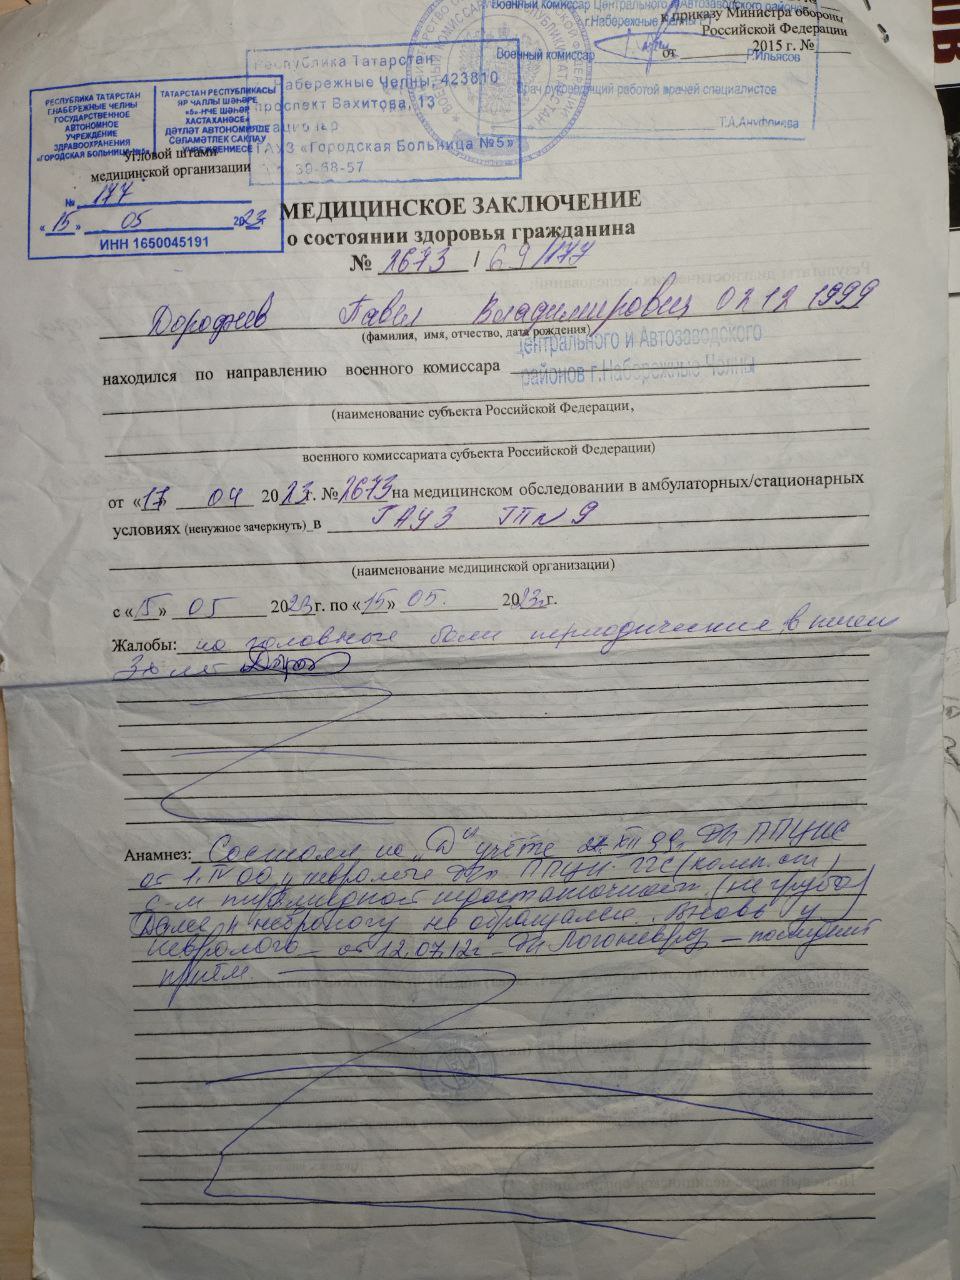 Военный комиссар Центрального и Автозаводского районов
г.Набережные Челны РТ
Военный комиссар
Р.Ильясов
Врач руководящий работой врачей специалистов
к приказу Министра обороны
Российской Федерации
от 2015 г. №
Республика Татарстан
Набережные Челны, 423810
проспект Вахитова, 13
Стационар
ГАУЗ «Городская Больница №5»
39-68-57
РЕСПУБЛИКА ТАТАРСТАН
Г.НАБЕРЕЖНЫЕ ЧЕЛНЫ
ГОСУДАРСТВЕННОЕ
АВТОНОМНОЕ
УЧРЕЖДЕНИЕ
ЗДРАВООХРАНЕНИЯ
«ГОРОДСКАЯ БОЛЬНИЦА №5»
ТАТАРСТАН РЕСПУБЛИКАСЫ
ЯР ЧАЛЛЫ ШӘҺӘРЕ
«5»-НЧЕ ШӘҺӘР
ХАСТАХАНӘСЕ»
ДӘҮЛӘТ АВТОНОМИЯЛЕ
СӘЛАМӘТЛЕК САКЛАУ
УЧРЕЖДЕНИЕСЕ
Угловой штамп
медицинской организации
№ 177
«15» 05 2023г
ИНН 1650045191
МЕДИЦИНСКОЕ ЗАКЛЮЧЕНИЕ
о состоянии здоровья гражданина
№ 2673 / 69/177
Павел Владимирович 02 12 1999
(фамилия, имя, отчество, дата рождения)
Центрального и Автозаводского
районов г.Набережные Челны
находился по направлению военного комиссара
(наименование субъекта Российской Федерации,
военного комиссариата субъекта Российской Федерации)
от «17» 04 2023г. № 2673 на медицинском обследовании в амбулаторных/стационарных
условиях (ненужное зачеркнуть) в ГАУЗ ГП №9
(наименование медицинской организации)
с «15» 05 2023г. по «15» 05. 2023г.
Жалобы: на головные боли периодические, в течен
3х лет
Анамнез: Состоял на „Д" учёте XII 99
от 1. IV 00 у невролога
с-м пирамидной недостаточност. (не грубо)
Далее к неврологу не обращался. Вновь у
невролога от 12.07.12г Логоневроз – последний
приём.